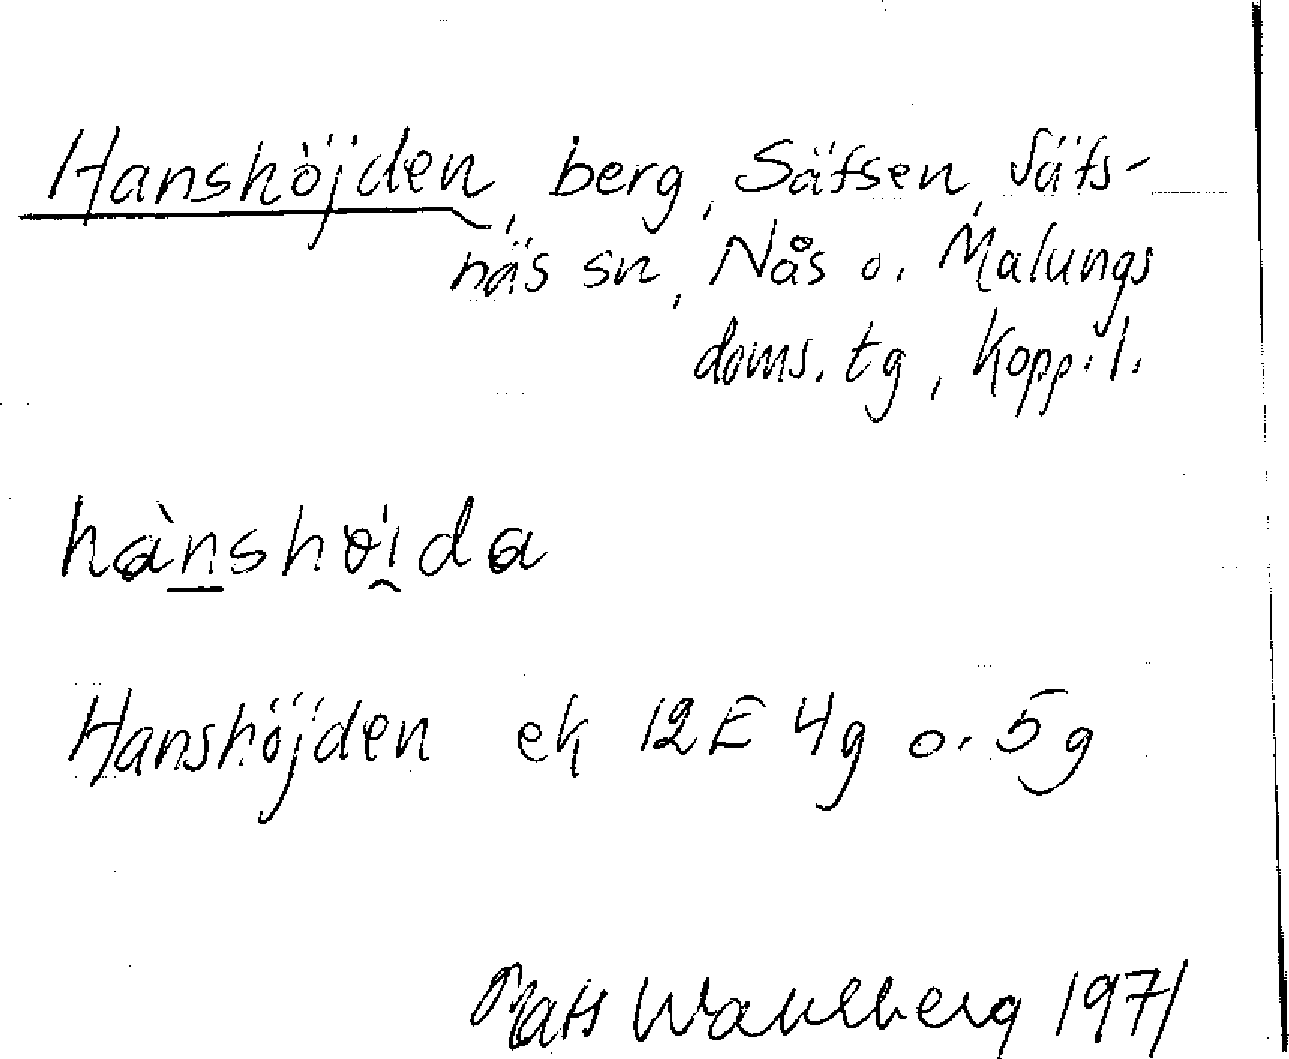 Hanshöjden, berg, Säfsen, Säfs-
näs sn, Nås o. Malungs
doms. tg, Kopp. l.
hànshöi̯da
Hanshöjden ek 12E 4g o. 5g
Mats Wahlberg 1971